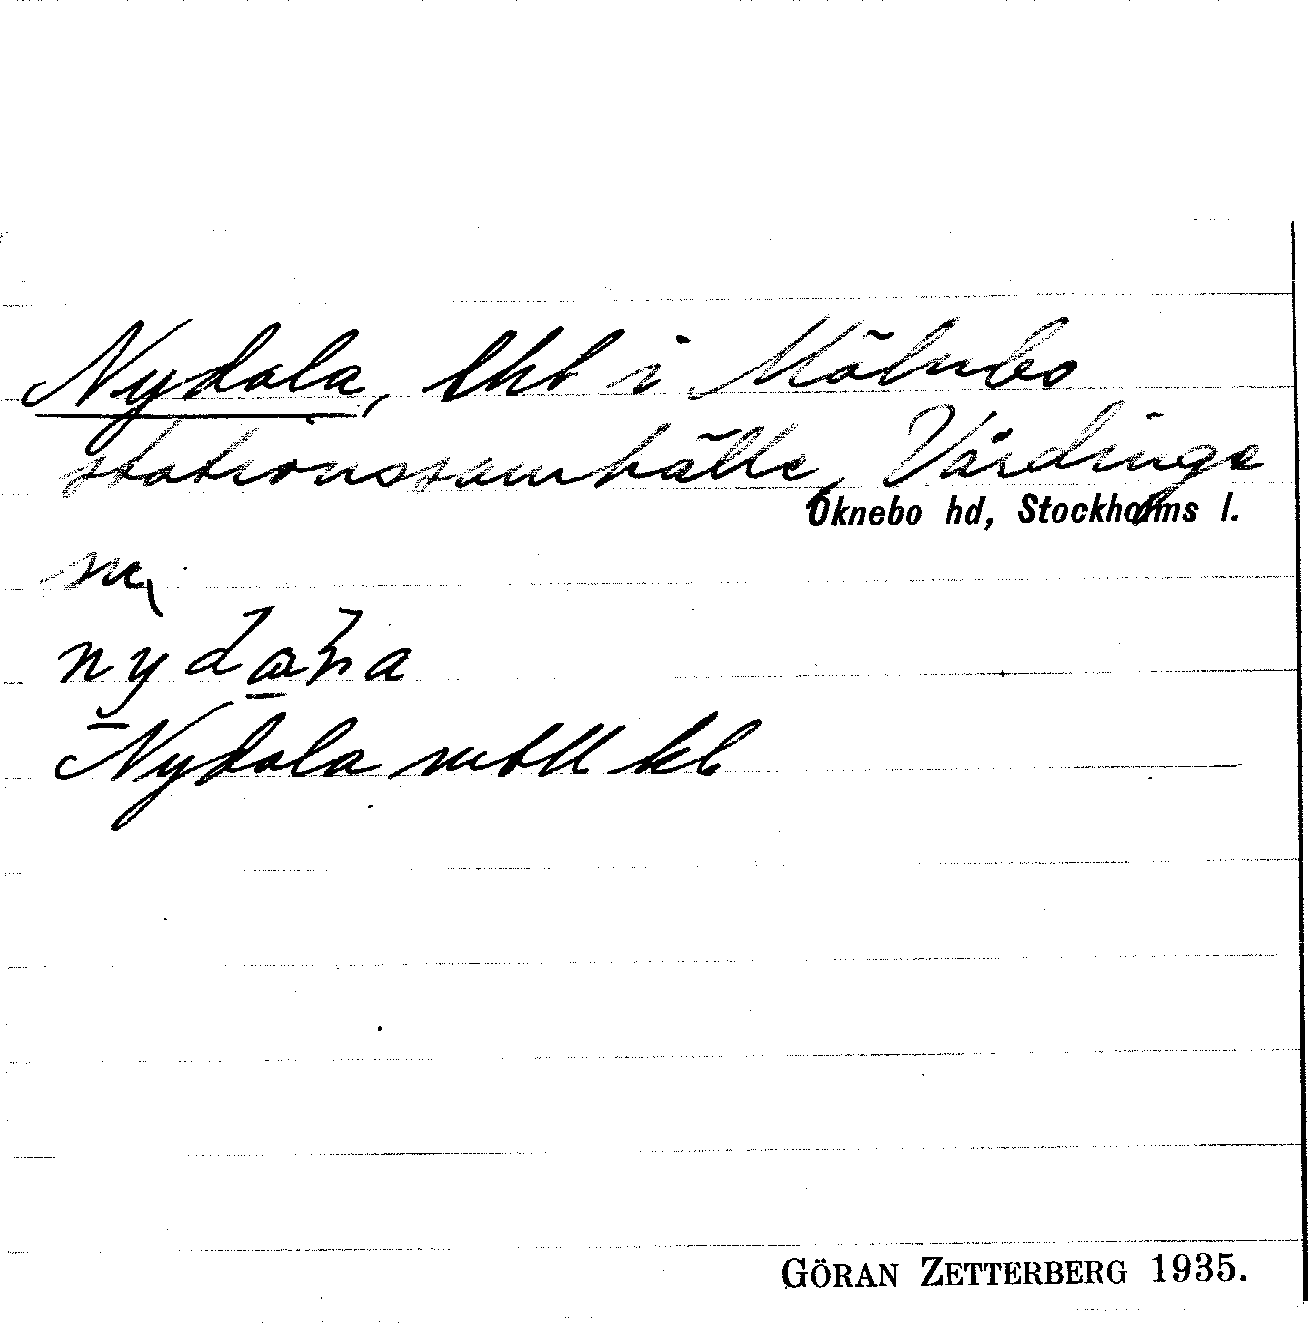 Nydala, lht i Mölnbo
stationssamhälle, Vårdinge
Öknebo hd, Stockholms l.
sn
nydaɷła
Nydala mtll kl
GÖRAN ZETTERBERG 1935.